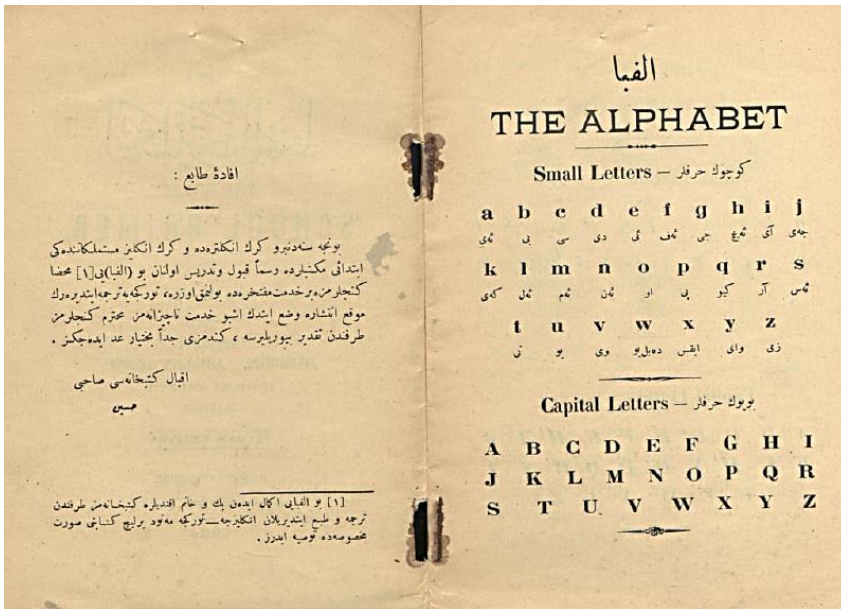 افادهٔ طابع :
بونجه سنه‌دنبرو كرك انكلتره‌ده و كرك انكليز مستملكاتنده‌كى
ابتدائى مكتبلرده رسماً قبول وتدريس اولنان بو (الفبا)يى[١] محضا
كنجلرمزه برخدمت مفتخره‌ده بولنمق اوزره، توركجه‌يه ترجمه ايتديره‌رك
موقع انتشاره وضع ايتدك اشبو خدمت ناچيزانه‌مز محترم كنجلرمز
طرفندن تقدير بيوريليرسه ، كندمزى جداً بختيار عد ايده‌جكز .
اقبال كتبخانه‌سى صاحبى
حسين
[١] بو الفبايى اكمال ايدن بك و خانم افنديلره كتبخانه‌مز طرفندن
ترجمه و طبع ايتديريلان انكليزجه—توركجه مه‌تود برليچ كتابنى صورت
مخصوصه‌ده توصيه ايدرز .
الفبا
THE ALPHABET
Small Letters — كوچوك حرفلر
a b c d e f g h i j
ئه‌ى بى سى دى ئى ئه‌ف جى ئه‌يچ آى جه‌ى
k l m n o p q r s
كه‌ى ئه‌ل ئه‌م ئه‌ن او پى كيو آر ئه‌س
t u v w x y z
تى يو وى ده‌بل‌يو ايقس واى زى
Capital Letters — بويوك حرفلر
A B C D E F G H I
J K L M N O P Q R
S T U V W X Y Z